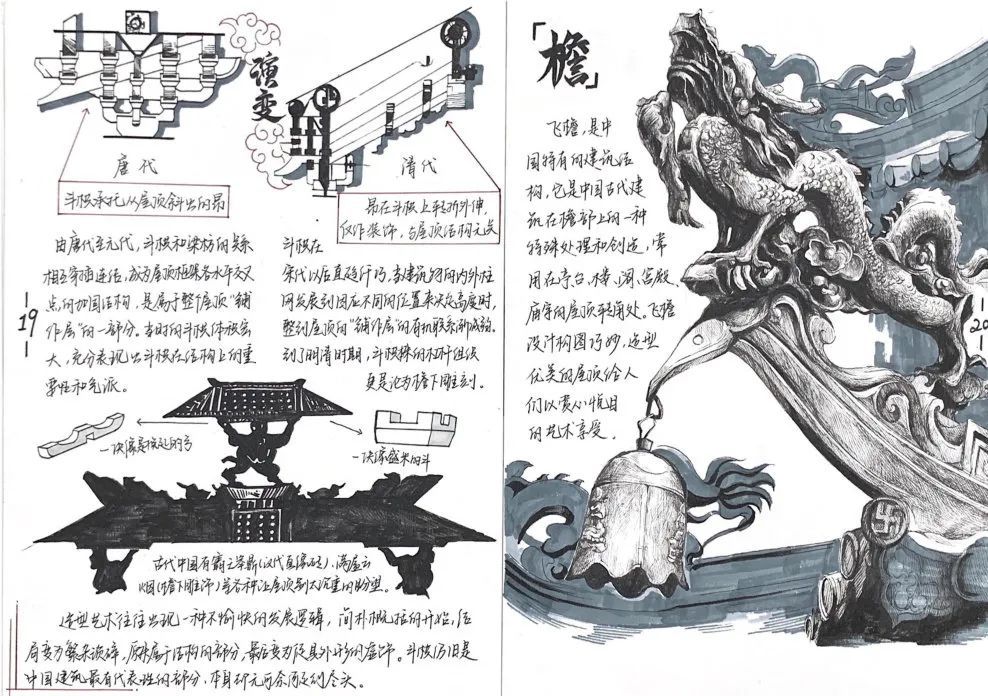 演变
唐代
清代
斗栱承托从屋顶斜出的昂
昂在斗栱上转折外伸,
仅作装饰,与屋顶结构无关
由唐代至元代,斗栱和梁枋的关系
相互穿插连结,成为屋顶框架各水平交叉
点的加固结构,是属于整个屋顶“铺
作层”的一部分。当时的斗栱体积宏
大,充分表现出斗栱在结构上的重
要性和气派。
斗栱在
宋代以后直趋纤巧,当建筑物的内外柱
网发展到因应不同的位置来决定高度时,
整到屋顶的“铺作层”的有机联系渐减弱。
到了明清时期,斗栱积的构件组织
更是沦为檐下雕刻。
-19-
一块像是挽起的弓
一块像盛米的斗
古代中国有霸王举鼎(汉代
),满屋云
烟(檐下雕饰)等各种让屋顶
沉重的
造型艺术往往出现一种不愉快的发展逻辑,简朴概括的开始,结
局变为繁杂琐碎,原来属于结构的部分,最后变为仅具外形的虚饰。斗栱仍旧是
中国建筑最有代表性的部分,本身
「檐」
飞檐,是中
国特有的建筑结
构,它是中国古代建
筑在檐部上的一种
特殊处理和创造,常
用在亭台、楼、阁、宫殿、
庙宇的屋顶转角处。飞檐
设计构图巧妙,造型
优美的屋顶给人
们以赏心悦目
的艺术享受。
-20-
卐